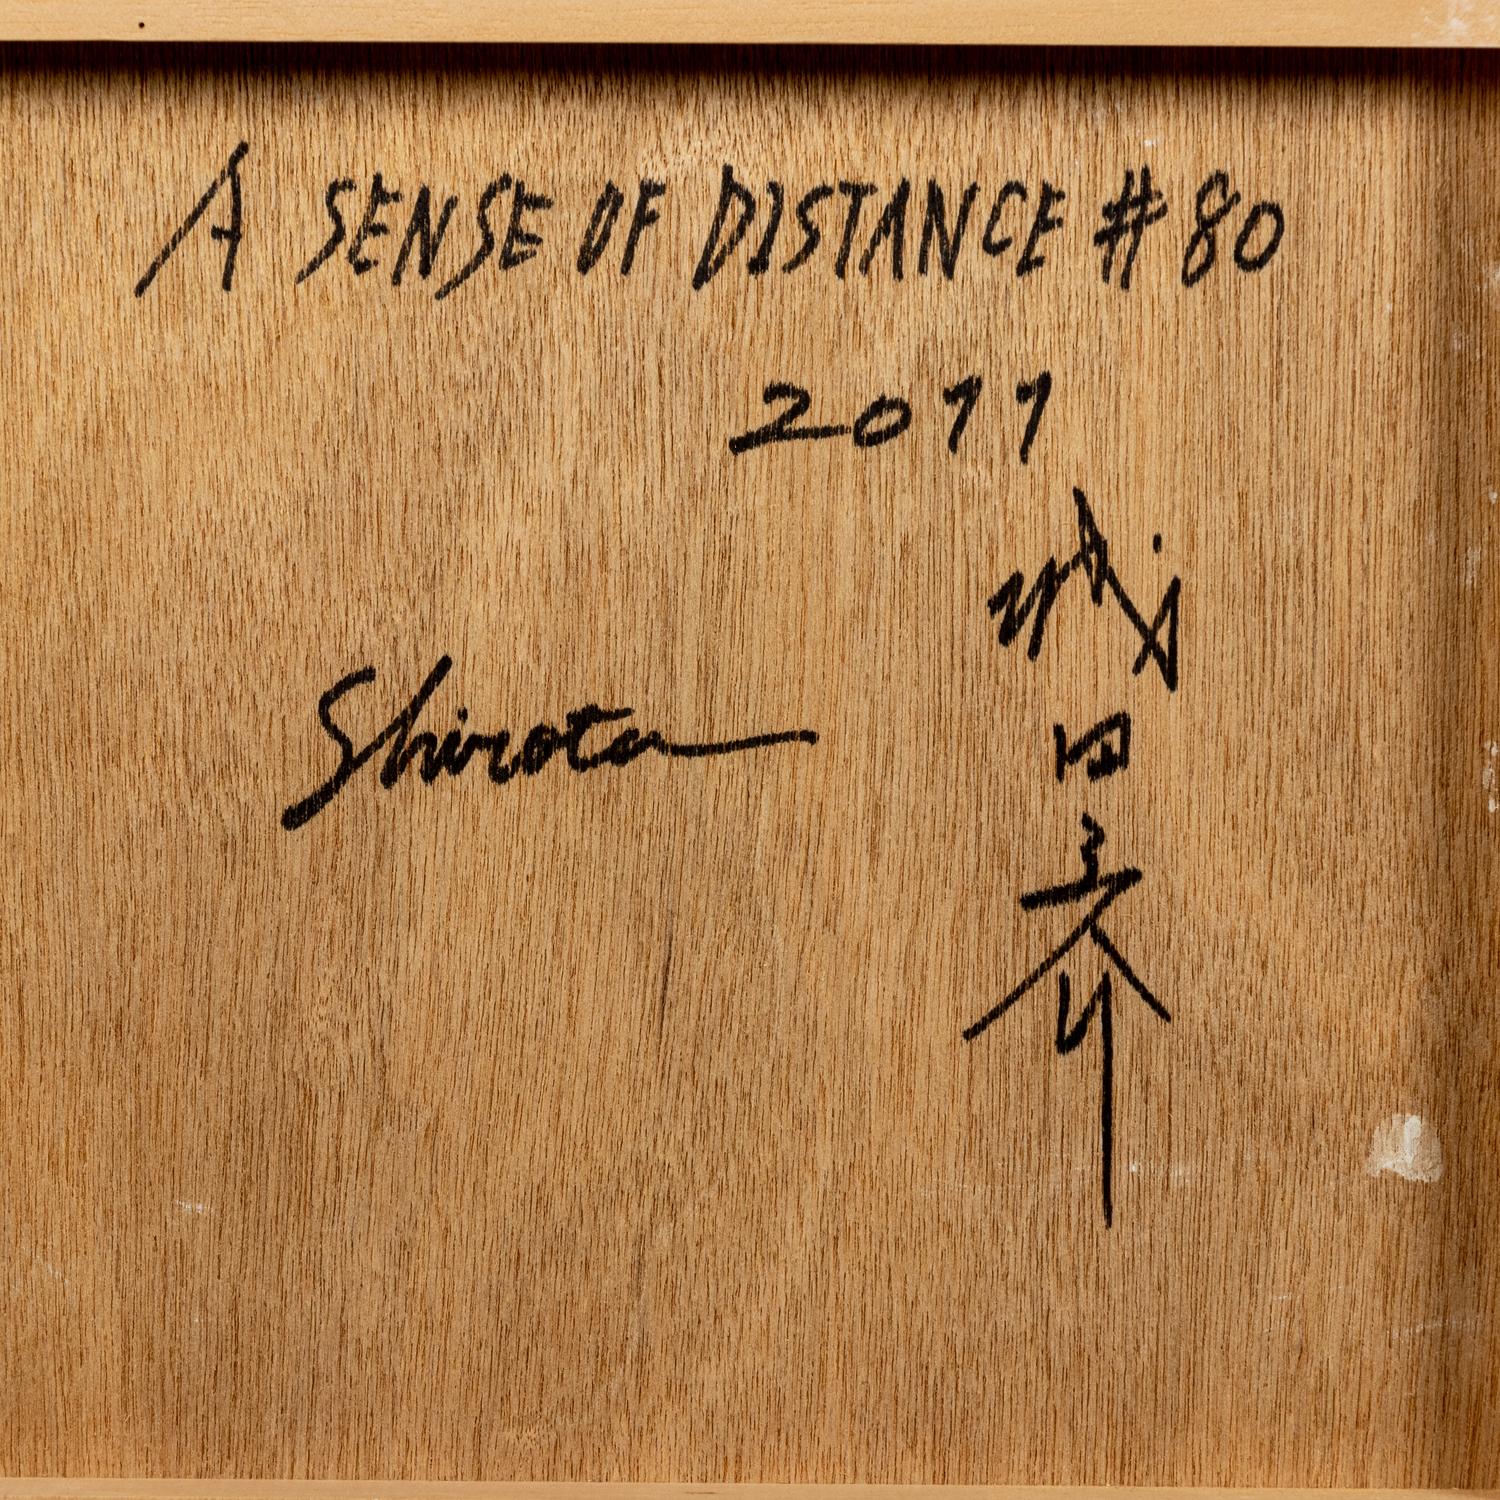 A SENSE OF DISTANCE #80
2011
Shirota
城田圭介